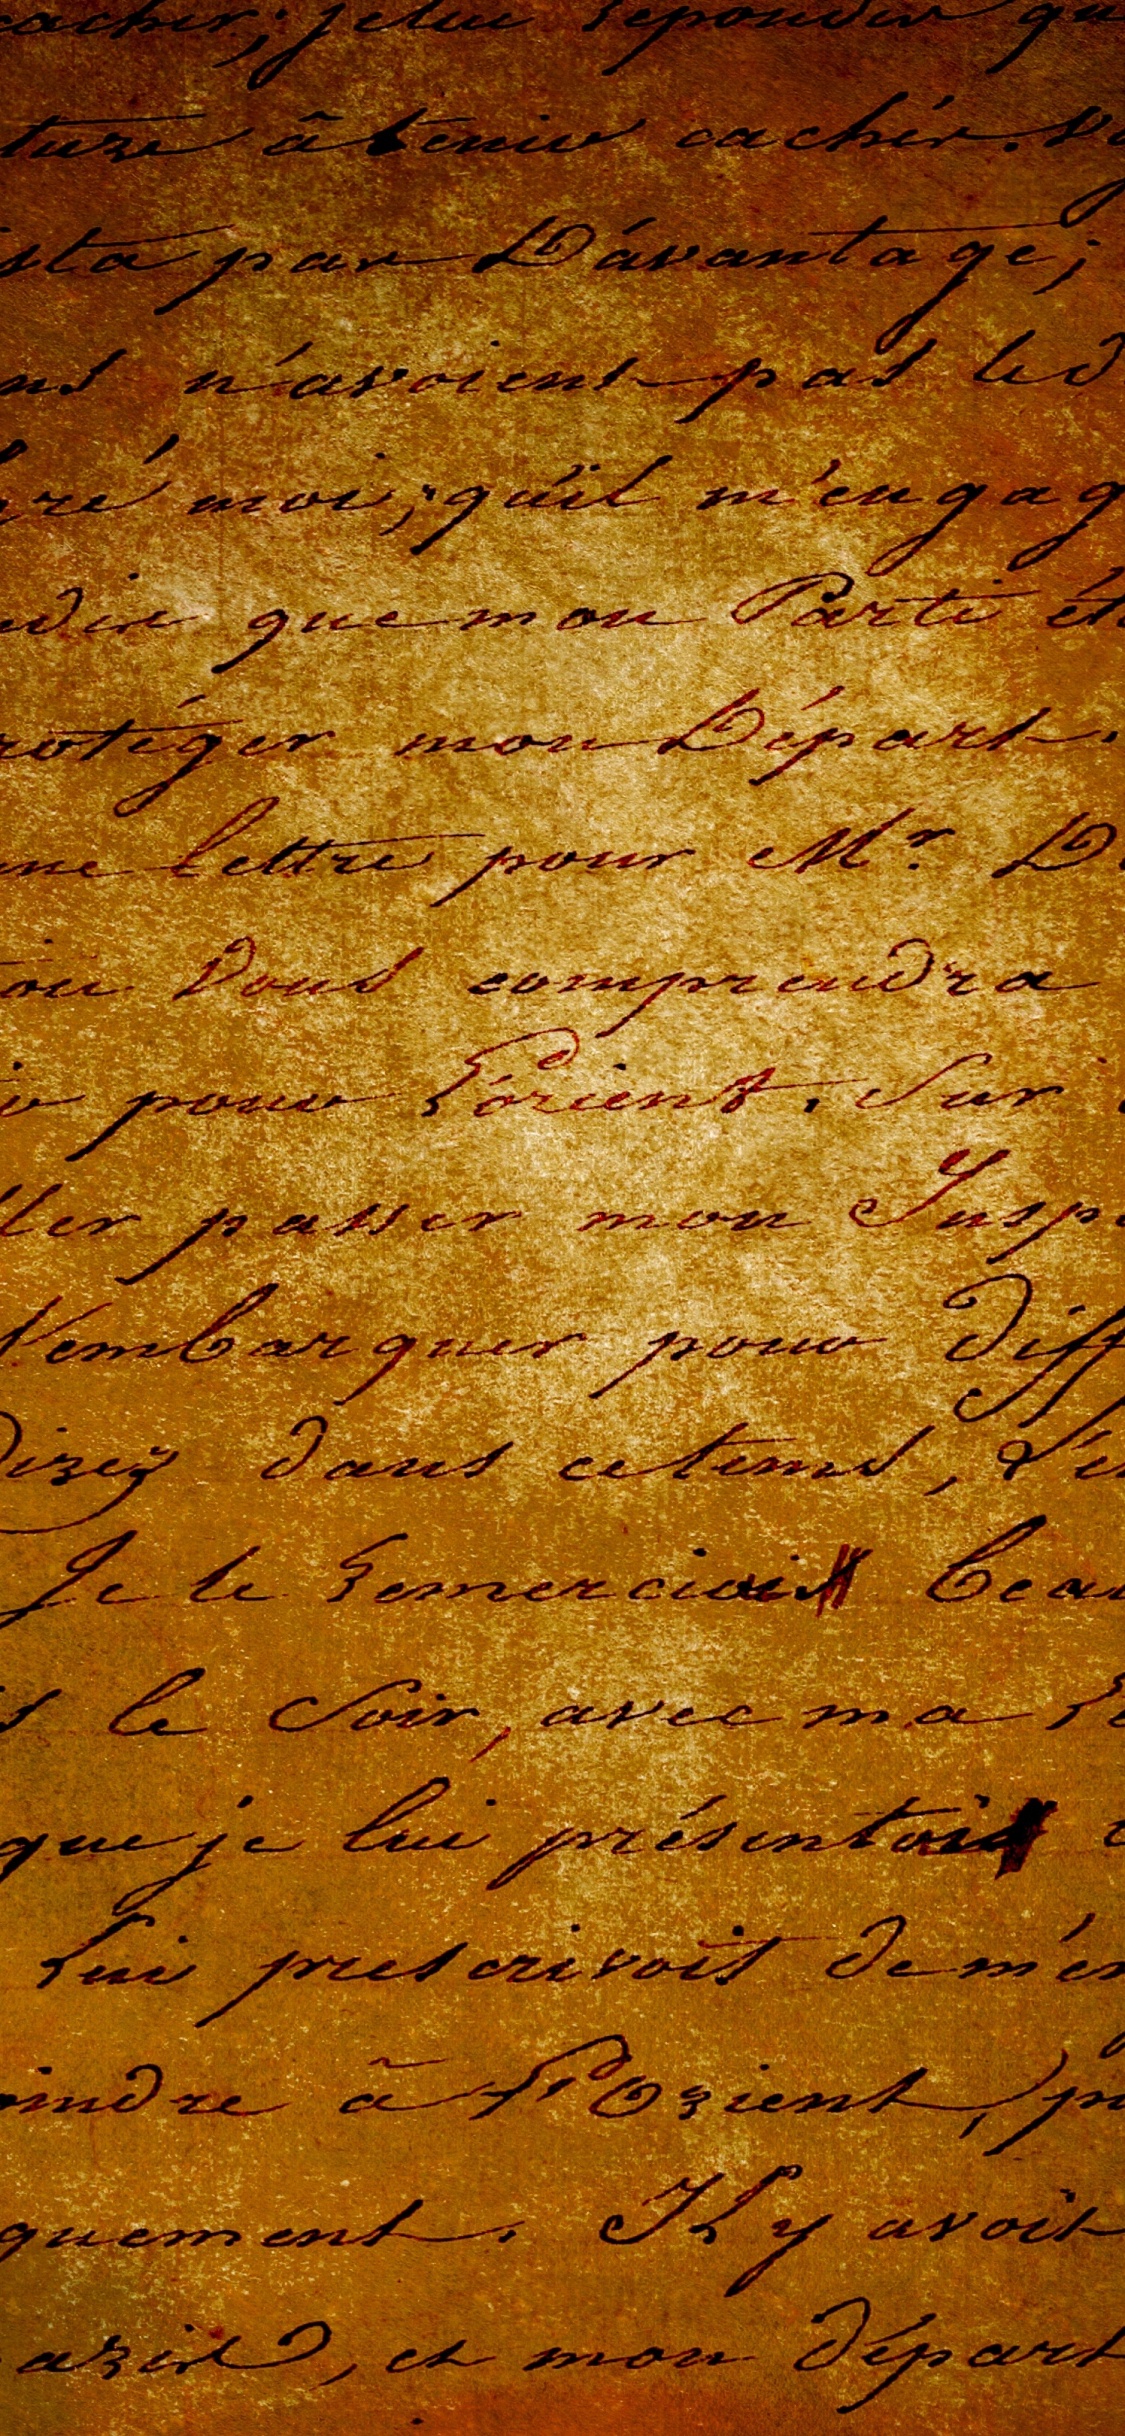 cacher; je lui répondis qu
ture à tenir cacher. Vo
ista par Davantage;
n'avoient pas led
gré moi; qu'il m'engag
que mon Parti ét
rotéger mon Départ.
une lettre pour Mr. D
Vous comprendra
pour l'orient. Sur
ller passer mon Insp
s'embarquer pour diff
Dizez dans cetems, &
Je le remerciai beau
le Soir, avec ma
que je lui présentai
lui prescrivoit de m'em
oindre à l'Orient, pr
quement. Il y avoit
azird, et mon départ